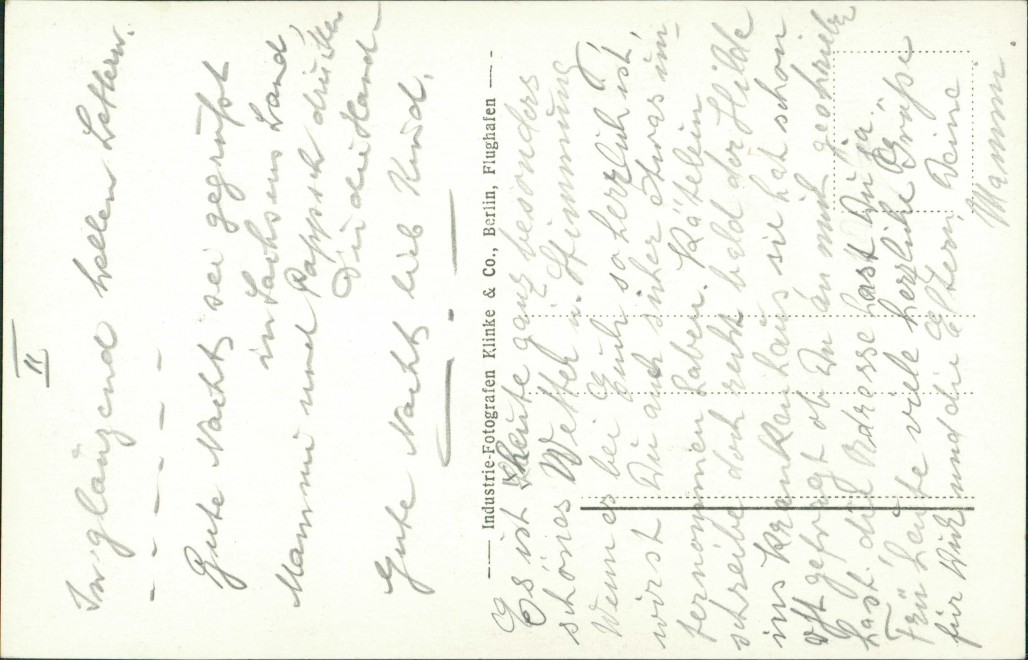 II
In glänzend hellen Lettern.
Gute Nacht sei gegrüßt
in Sachsens Land,
Mammi und Pappsch drücken
Dir die Hand
Gute Nacht lieb Kind.
Industrie-Fotografen Klinke & Co., Berlin, Flughafen
Es ist heute ganz besonders
schönes Wetter u. Stimmung
Wenn es bei Euch so herrlich ist,
wirst Du auch sicher etwas un-
ternommen haben. Kätelein
schreibe doch recht bald der Hilde
ins Krankenhaus sie hat schon
oft gefragt ob Du an mich geschrieben
hast. die Adresse hast Du ja.
Für heute viele herzliche Grüße
für Dich und die Eltern, Deine
Mammi.